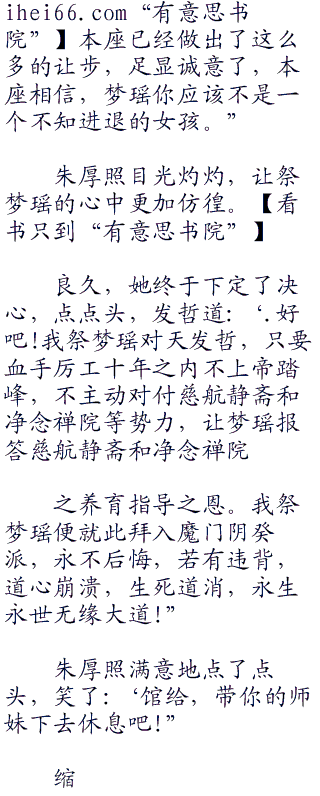 ihei66.com“有意思书
院”】本座已经做出了这么
多的让步，足显诚意了，本
座相信，梦瑶你应该不是一
个不知进退的女孩。”
朱厚照目光灼灼，让祭
梦瑶的心中更加仿徨。【看
书只到“有意思书院”】
良久，她终于下定了决
心，点点头，发哲道：‘.好
吧!我祭梦瑶对天发哲，只要
血手厉工十年之内不上帝踏
峰，不主动对付慈航静斋和
净念禅院等势力，让梦瑶报
答慈航静斋和净念禅院
之养育指导之恩。我祭
梦瑶便就此拜入魔门阴癸
派，永不后悔，若有违背，
道心崩溃，生死道消，永生
永世无缘大道!”
朱厚照满意地点了点
头，笑了：‘馆给，带你的师
妹下去休息吧!”
缩